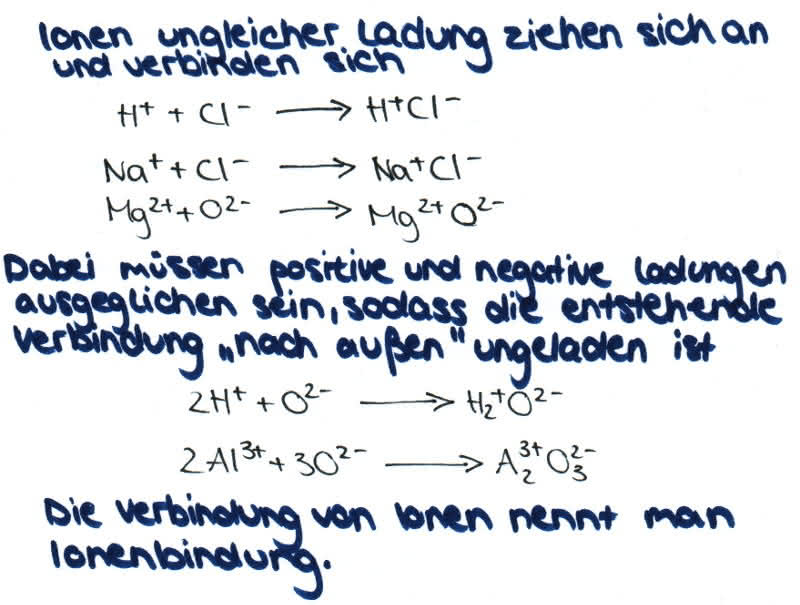 Ionen ungleicher Ladung ziehen sich an
und verbinden sich
H⁺ + Cl⁻ → H⁺Cl⁻
Na⁺ + Cl⁻ → Na⁺Cl⁻
Mg²⁺ + O²⁻ → Mg²⁺O²⁻
Dabei müssen positive und negative Ladungen
ausgeglichen sein, sodass die entstehende
Verbindung „nach außen" ungeladen ist
2H⁺ + O²⁻ → H₂⁺O²⁻
2Al³⁺ + 3O²⁻ → A₂³⁺O₃²⁻
Die Verbindung von Ionen nennt man
Ionenbindung.